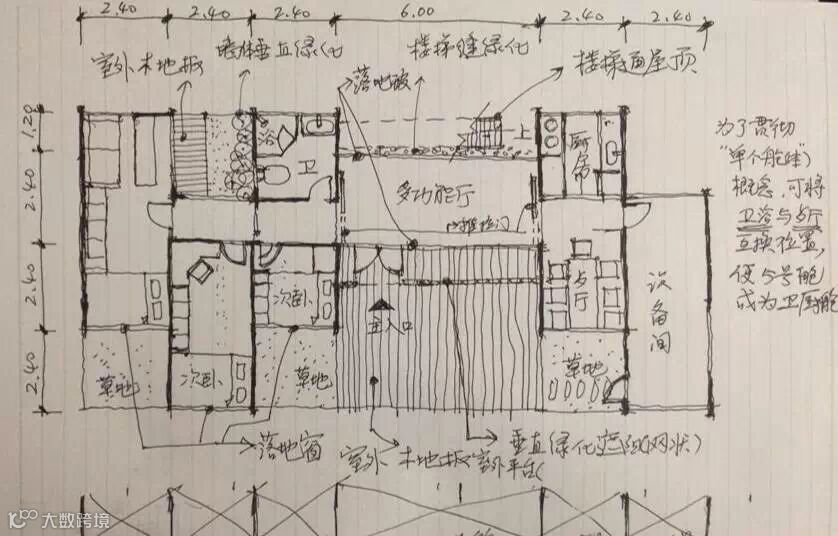 2.40 2.40 2.40 6.00 2.40 2.40
室外木地板
垂直绿化
楼梯间绿化
楼梯通屋顶
落地玻
1.20
2.40
2.40
2.40
浴
卫
上
厨房
多功能厅
推拉门
为了贯彻
"单个舱体"
概念,可将
卫浴与占厅
互换位置,
使5号舱
成为卫厨舱
次卧
主入口
占厅
设备间
草地
次卧
草地
草地
落地窗
室外木地板室外平台
垂直绿化
网状)
大数跨境